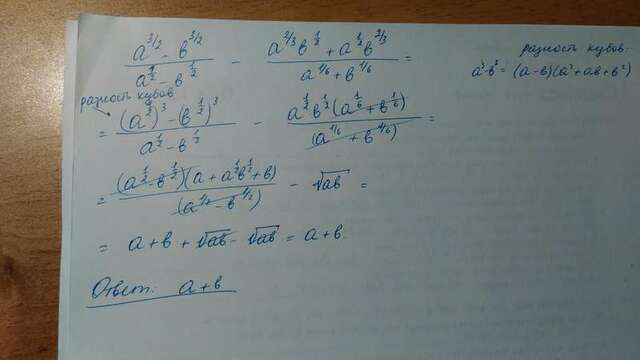 (a^{3/2} - b^{3/2})/(a^{1/2} - b^{1/2}) - (a^{2/3}b^{1/2} + a^{1/2}b^{2/3})/(a^{1/6} + b^{1/6}) =
разность кубов
a³-b³ = (a-b)(a²+ab+b²)
разность кубов
= ((a^{1/2})³ - (b^{1/2})³)/(a^{1/2} - b^{1/2}) - (a^{1/2}b^{1/2}(a^{1/6} + b^{1/6}))/((a^{1/6} + b^{1/6})) =
= ((a^{1/2} - b^{1/2})(a + a^{1/2}b^{1/2} + b))/((a^{1/2} - b^{1/2})) - √ab =
= a + b + √ab - √ab = a + b.
Ответ: a + b